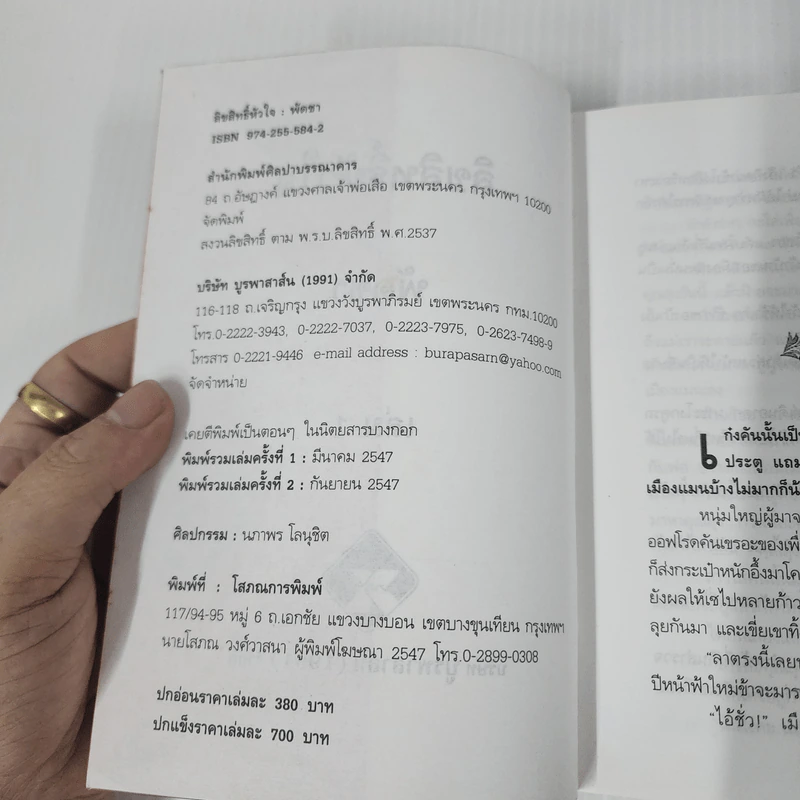 ลิขสิทธิ์หัวใจ : พัดชา
ISBN 974-255-584-2
สำนักพิมพ์ศิลปาบรรณาคาร
84 ถ.อัษฎางค์ แขวงศาลเจ้าพ่อเสือ เขตพระนคร กรุงเทพฯ 10200
จัดพิมพ์
สงวนลิขสิทธิ์ ตาม พ.ร.บ.ลิขสิทธิ์ พ.ศ.2537
บริษัท บูรพาสาส์น (1991) จำกัด
116-118 ถ.เจริญกรุง แขวงวังบูรพาภิรมย์ เขตพระนคร กทม.10200
โทร.0-2222-3943, 0-2222-7037, 0-2223-7975, 0-2623-7498-9
โทรสาร 0-2221-9446 e-mail address : burapasarn@yahoo.com
จัดจำหน่าย
เคยตีพิมพ์เป็นตอนๆ ในนิตยสารบางกอก
พิมพ์รวมเล่มครั้งที่ 1 : มีนาคม 2547
พิมพ์รวมเล่มครั้งที่ 2 : กันยายน 2547
ศิลปกรรม : นภาพร โลนุชิต
พิมพ์ที่ : โสภณการพิมพ์
117/94-95 หมู่ 6 ถ.เอกชัย แขวงบางบอน เขตบางขุนเทียน กรุงเทพฯ
นายโสภณ วงศ์วาสนา ผู้พิมพ์โฆษณา 2547 โทร.0-2899-0308
ปกอ่อนราคาเล่มละ 380 บาท
ปกแข็งราคาเล่มละ 700 บาท
เก๋งคันนั้นเป็
ประตู แถม
เมืองแมนบ้างไม่มากก็น้
หนุ่มใหญ่ผู้มาจ
ออฟโรดคันเขรอะของเพื่
ก็ส่งกระเป๋าหนักอึ้งมาโค
ยังผลให้เซไปหลายก้าว
ลุยกันมา และเขี่ยเขาทิ้
“ลาตรงนี้เลย
ปีหน้าฟ้าใหม่ข้าจะมาร
“ไอ้ชั่ว!” เมื